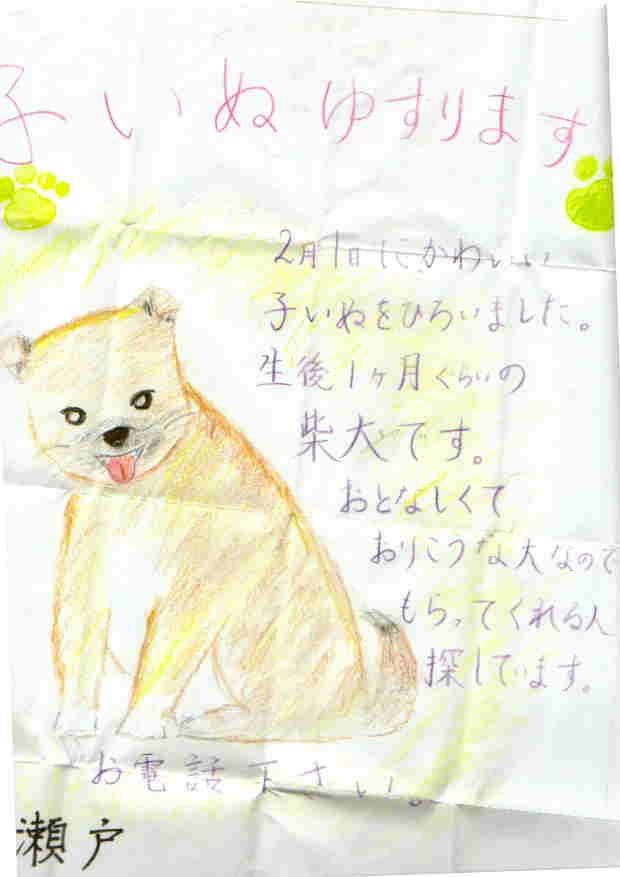 子いぬゆすります
2月1日にかわいい
子いぬをひろいました。
生後1ヶ月くらいの
柴大です。
おとなしくて
おりこうな大なので
もらってくれる人
探しています。
お電話下さい。
瀬戸